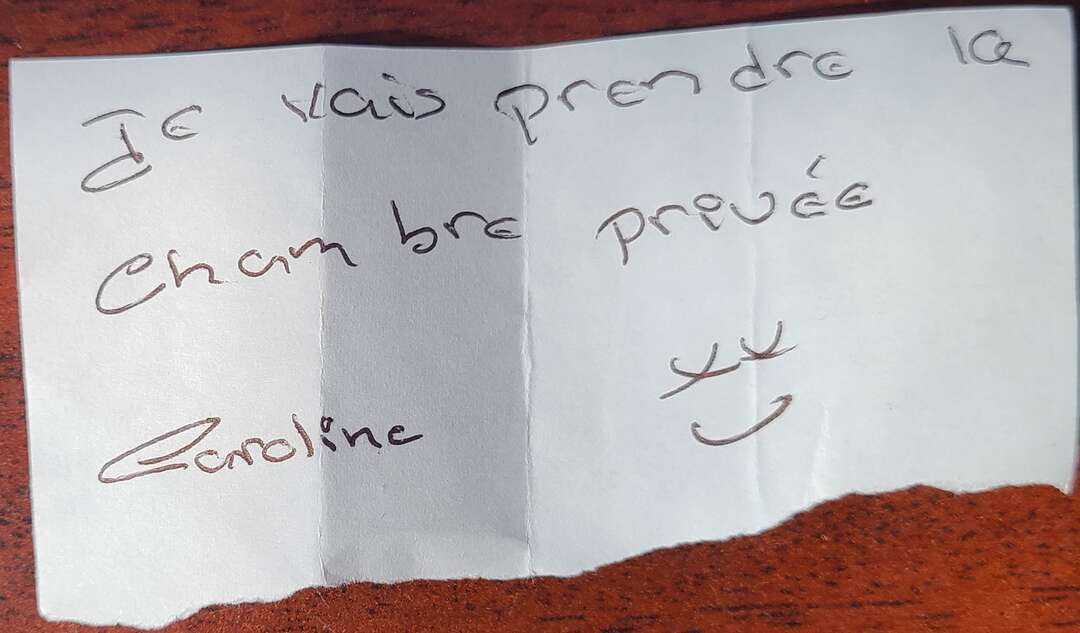 Je vais prendre la
Chambre privée
Caroline